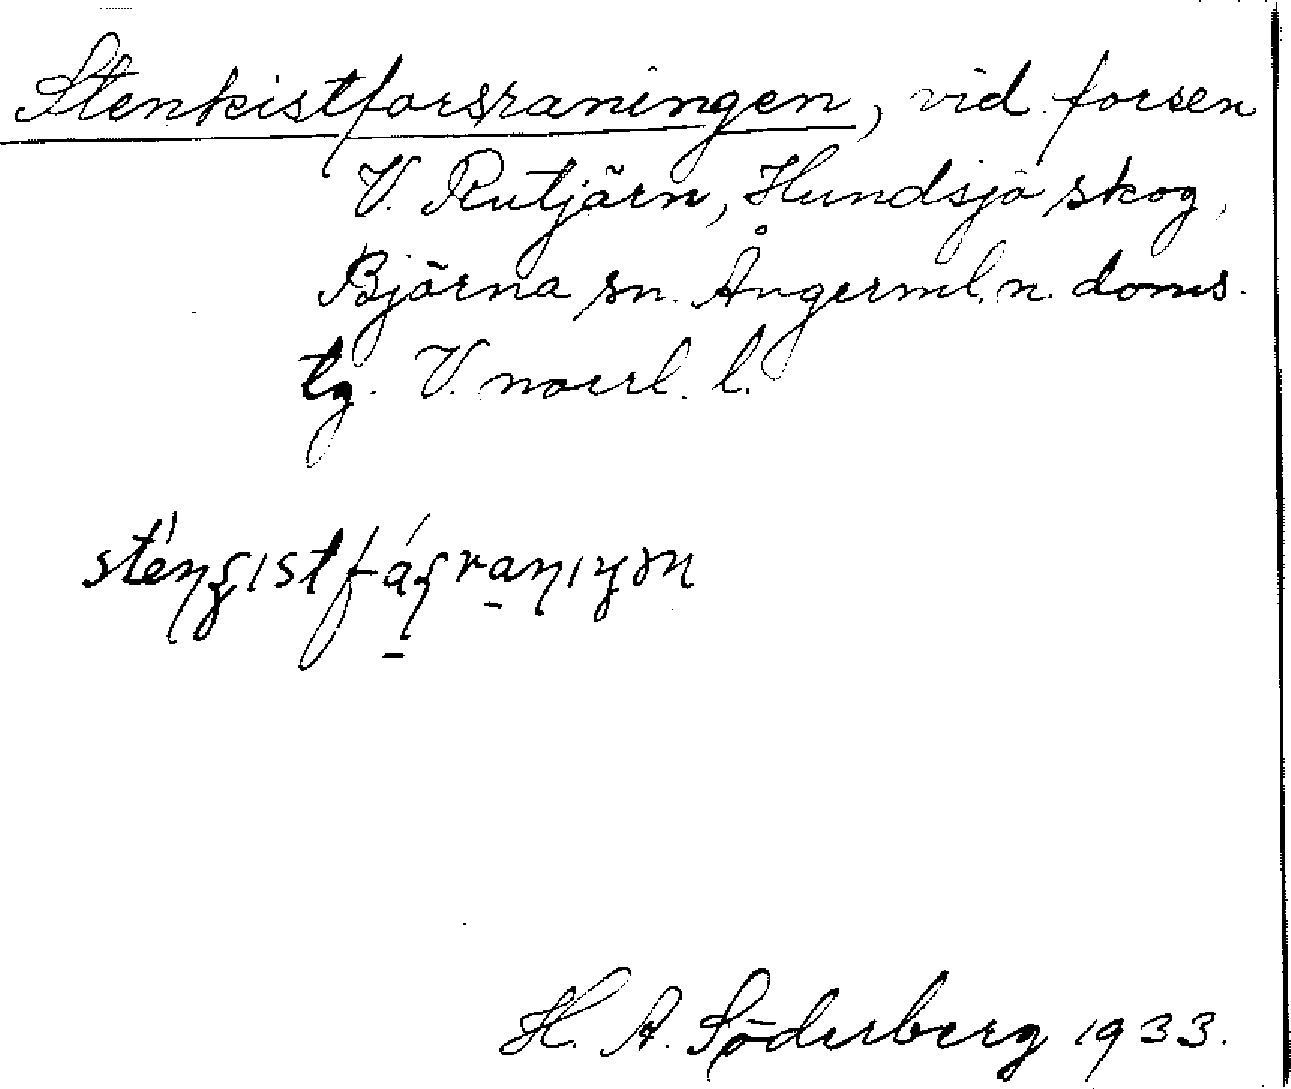 Stenkistforsraningen, vid forsen
V. Rutjärn, Hundsjö skog,
Björna sn. Ångerml. n. doms.
tg. V. norrl. l.
H. A. Söderberg 1933.